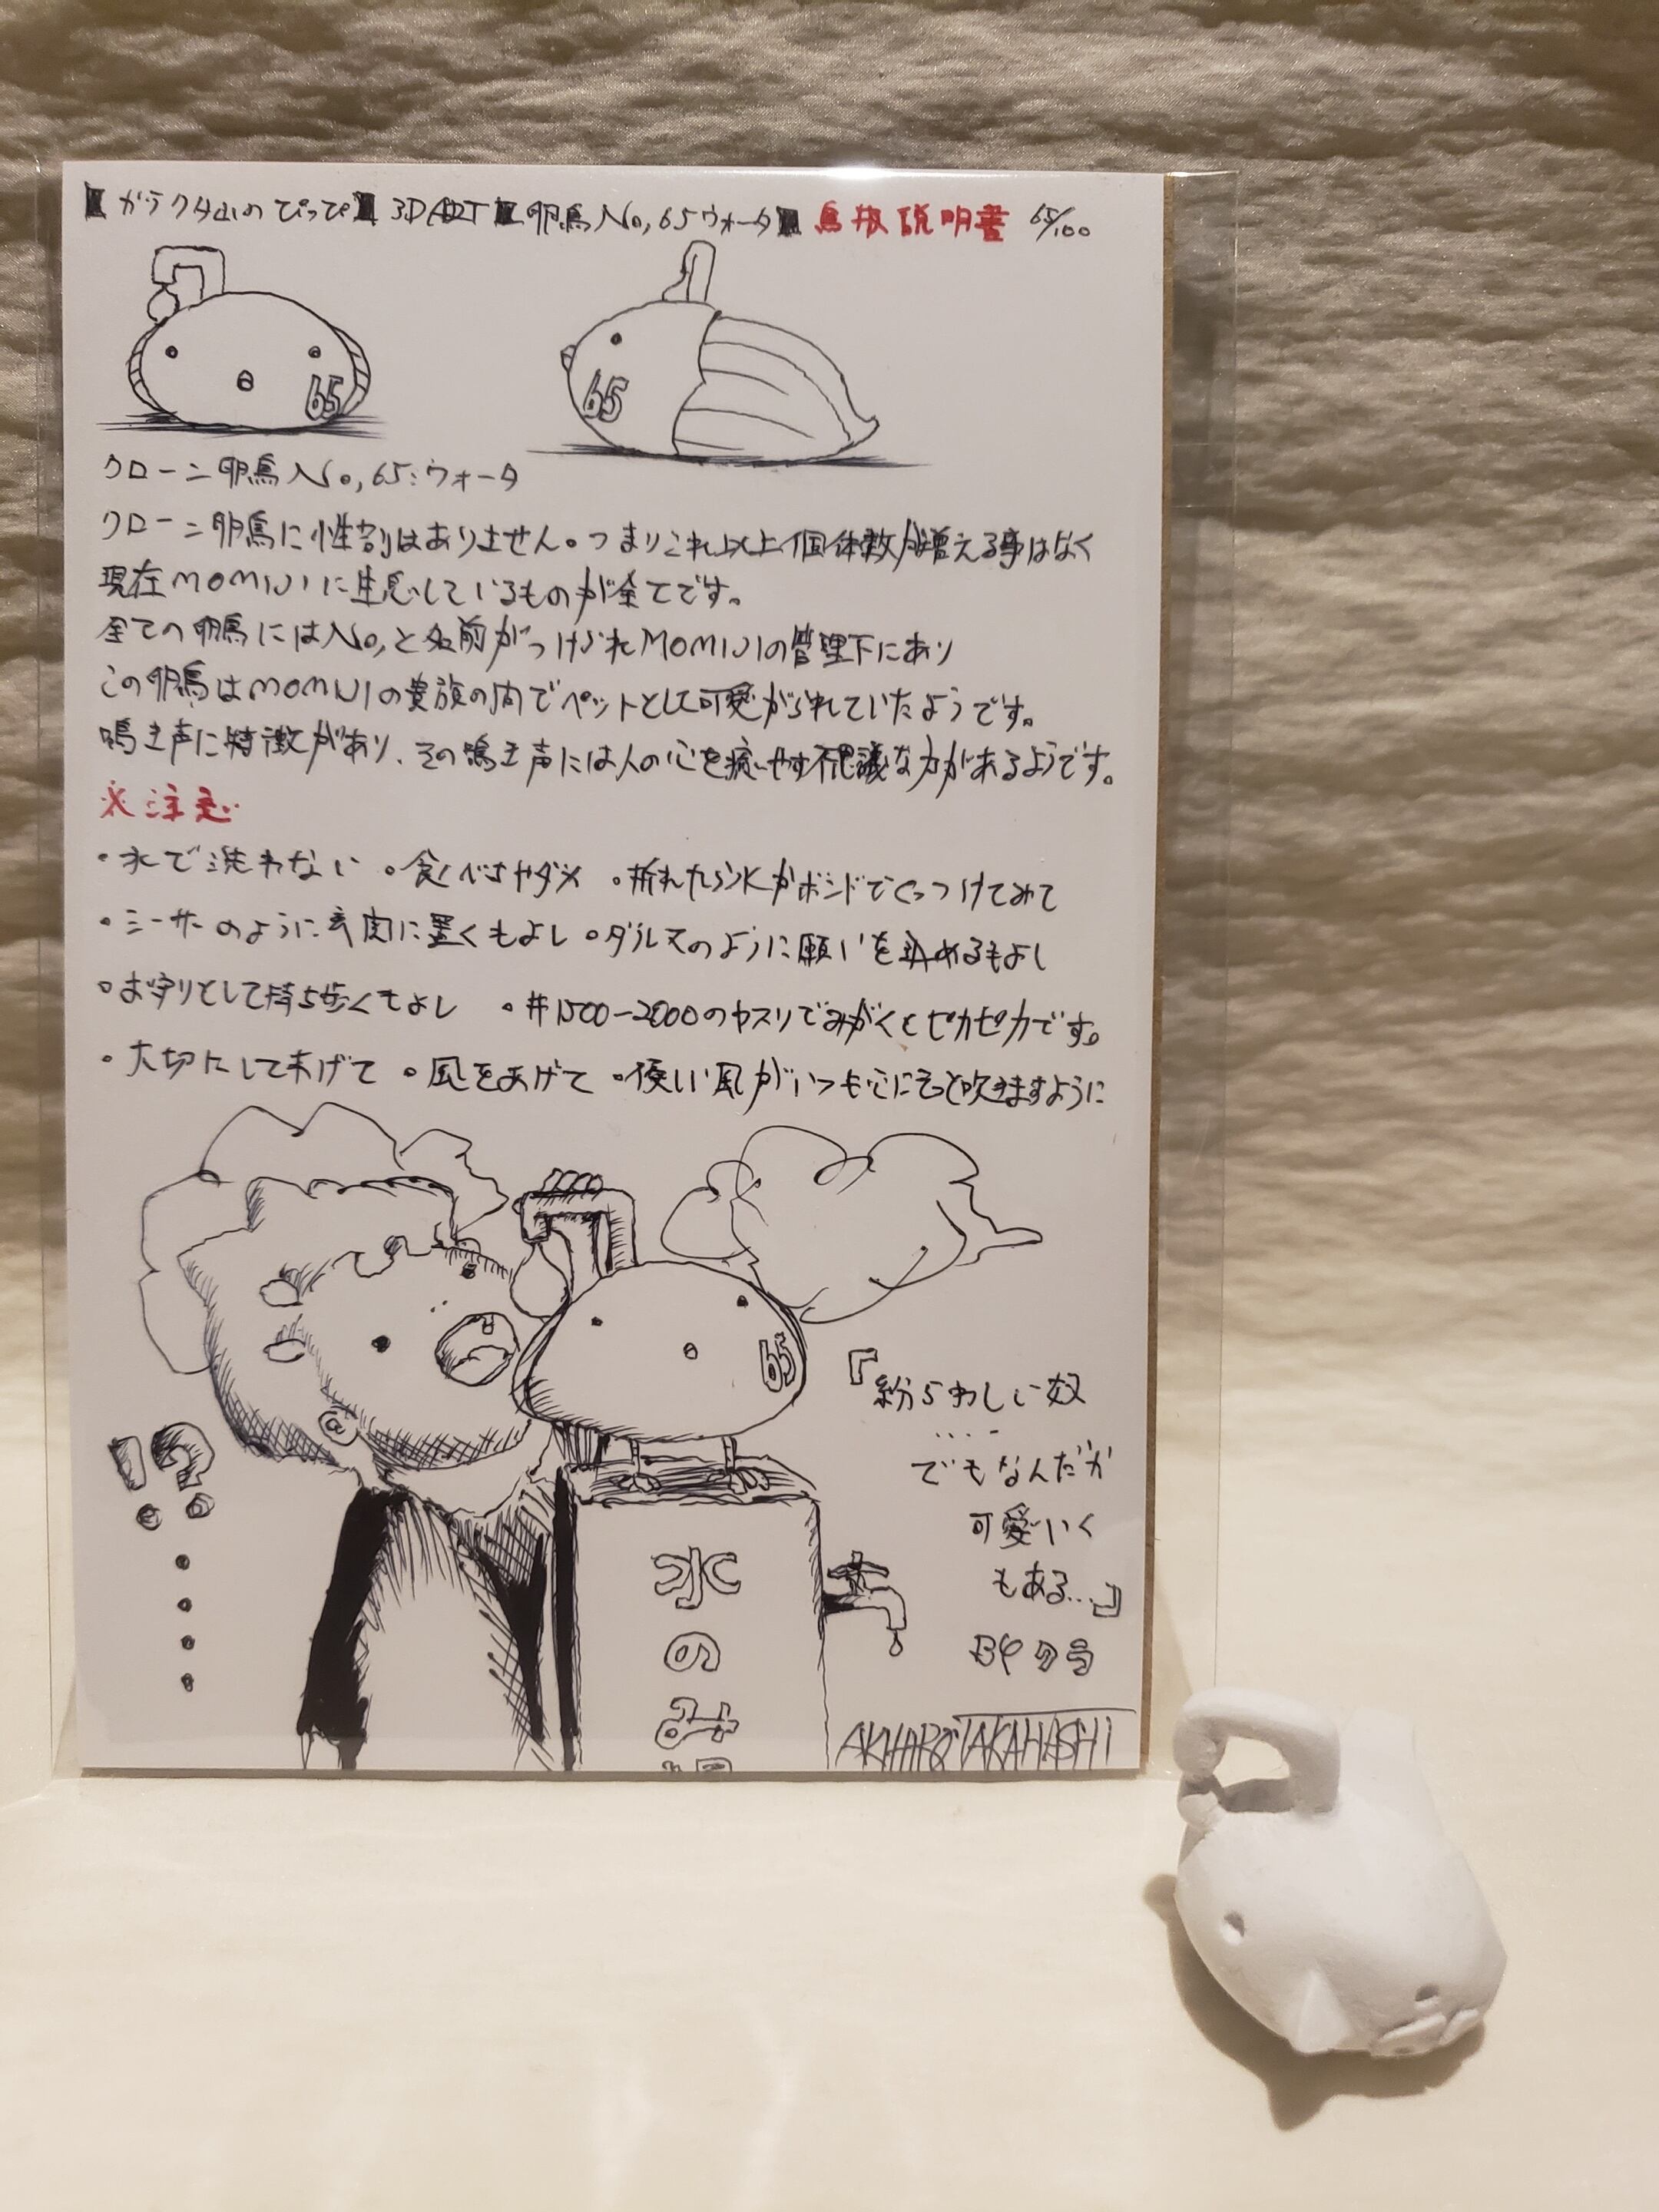 【ガラクタ山のぴっぴ】3D ART【卵鳥No,65ウォータ】鳥扱説明書 65/100
65
65
クローン卵鳥No,65:ウォータ
クローン卵鳥に性別はありません。つまりこれ以上個体数が増える事はなく
現在MOMIJIに生息しているものが全てです。
全ての卵鳥にはNo,と名前がつけられMOMIJIの管理下にあり
この卵鳥はMOMIJIの貴族の間でペットとして可愛がられていたようです。
鳴き声に特徴があり、その鳴き声には人の心を癒やす不思議な力があるようです。
※注意
・水で洗わない ・食べちゃダメ ・折れたら木工ボンドでくっつけてみて
・シーサーのように玄関に置くもよし ・ダルマのように願いを込めるもよし
・お守りとして持ち歩くもよし ・#1500-2000のヤスリでみがくとピカピカです。
・大切にしてあげて ・風をあげて ・優しい風がいつも心にそっと吹きますように
65
!?
『紛らわしい奴
....
でもなんだか
可愛いく
もある...』
BY タラ
水
の
AKIHIRO TAKAHASHI